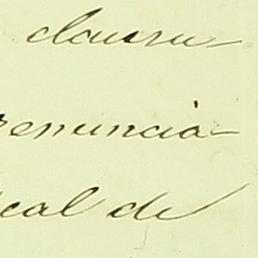 clausu-
renuncia-
cal de